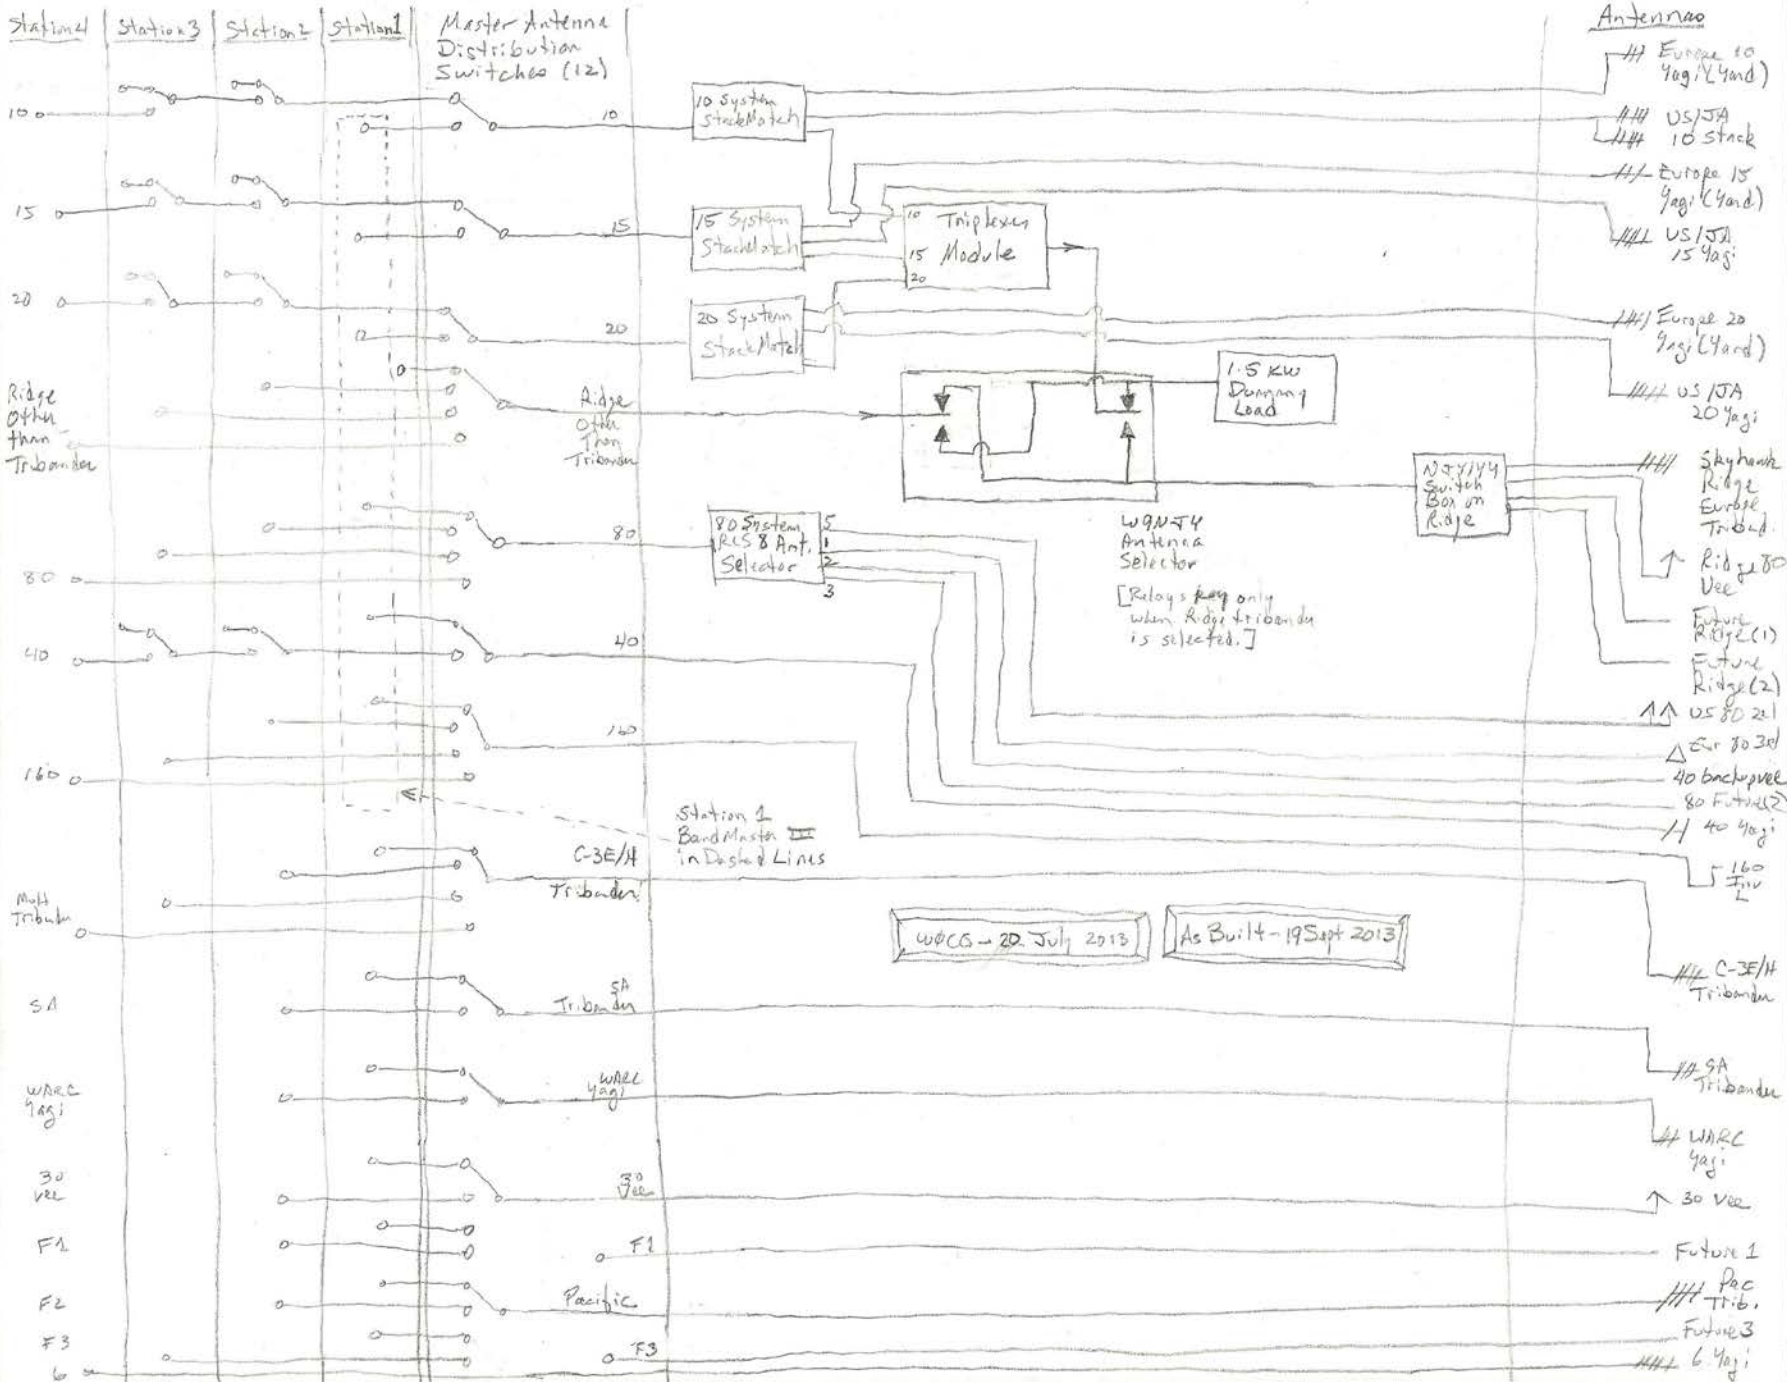 Station4
Station3
Station2
Station1
Master Antenna
Distribution
Switches (12)
Antennas
10
15
20
Ridge
Other
than
Tribander
80
40
160
Mult
Tribander
SA
WARC
Yagi
30
Vee
F1
F2
F3
6
10
15
20
Ridge
Other
Than
Tribander
80
40
160
C-3E/H
Tribander
SA
Tribander
WARC
Yagi
30
Vee
F1
Pacific
F3
10 System
StackMatch
15 System
StackMatch
20 System
StackMatch
10
Triplexer
15 Module
20
1.5 KW
Dummy
Load
80 System
RCS 8 Ant.
Selector
5
1
2
3
W9NJY
Antenna
Selector
[Relays key only
when Ridge tribander
is selected.]
Switch
Box on
Ridge
Station 1
BandMaster III
in Dashed Lines
WØCG - 20 July 2013
As Built - 19 Sept 2013
Europe 10
Yagi (Yard)
US/JA
10 Stack
Europe 15
Yagi (Yard)
US/JA
15 Yagi
Europe 20
Yagi (Yard)
US/JA
20 Yagi
Skyhawk
Ridge
Europe
Ridge 80
Vee
Future
Ridge (1)
Future
Ridge (2)
US 80 2el
Eur 80 3el
40 backup vee
80 Future(2)
40 Yagi
160
Inv
L
C-3E/H
Tribander
SA
Tribander
WARC
Yagi
30 Vee
Future 1
Pac
Trib.
Future 3
6 Yagi